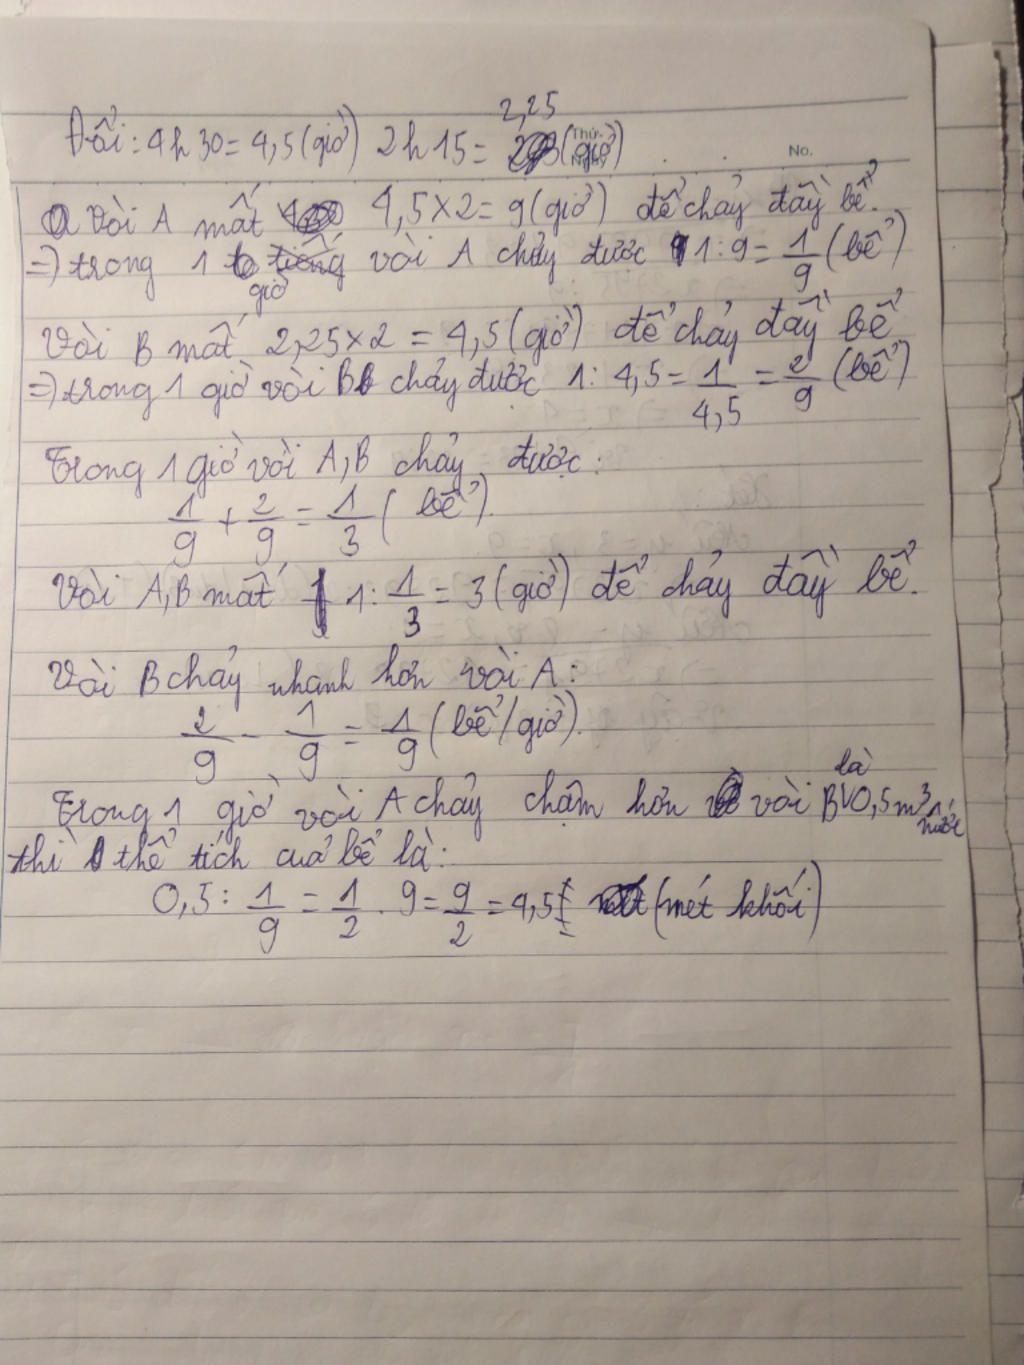 2,25
Đổi: 4h30 = 4,5 (giờ) 2h15 = (giờ)
Thứ.
Ngày
No.
Vòi A mất 4,5 × 2 = 9 (giờ) để chảy đầy bể.
=> trong 1 giờ vòi A chảy được 1 : 9 = 1/9 (bể)
Vòi B mất 2,25 × 2 = 4,5 (giờ) để chảy đầy bể
=> trong 1 giờ vòi B chảy được 1 : 4,5 = 1/4,5 = 2/9 (bể)
Trong 1 giờ vòi A, B chảy được :
1/9 + 2/9 = 1/3 ( bể ).
Vòi A, B mất 1 : 1/3 = 3 (giờ) để chảy đầy bể.
Vòi B chảy nhanh hơn vòi A :
2/9 - 1/9 = 1/9 (bể/giờ).
Trong 1 giờ vòi A chảy chậm hơn vòi B là 0,5 m³ nước
thì thể tích của bể là :
0,5 : 1/9 = 1/2 . 9 = 9/2 = 4,5 (mét khối)